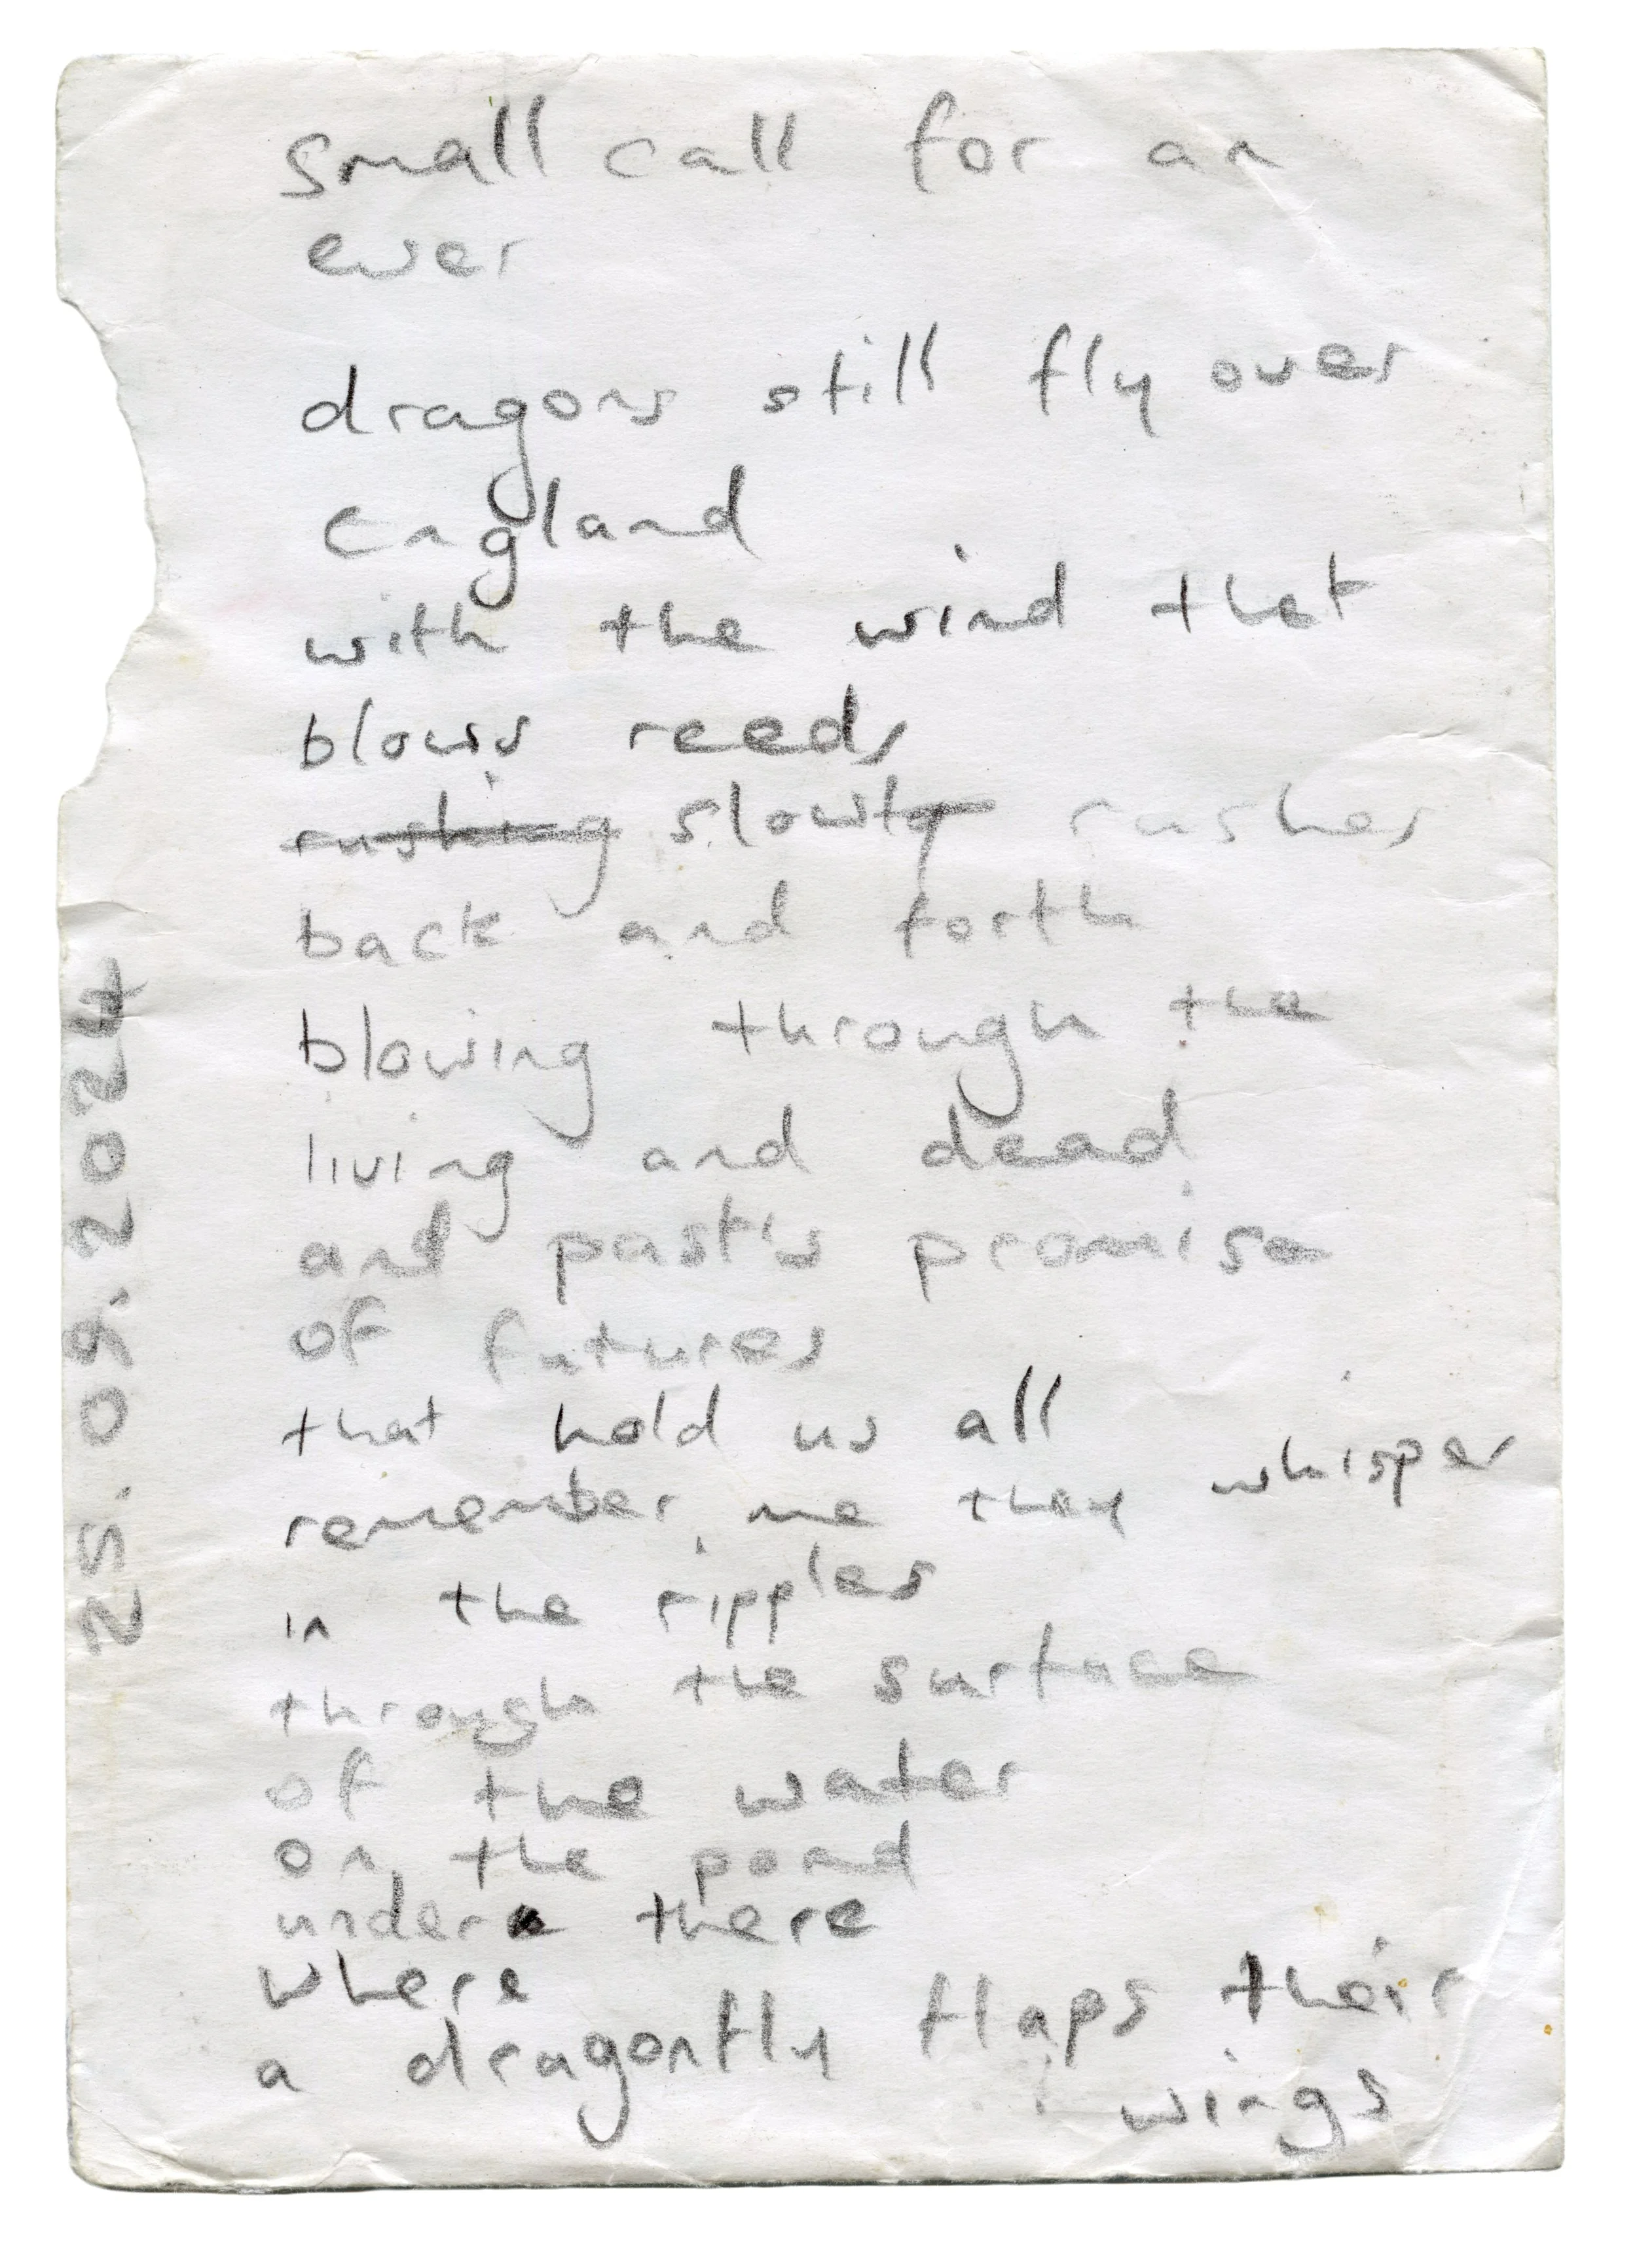 small call for an
ever
dragons still fly over
England
with the wind that
blows reeds
rushing slowly rushes
back and forth
blowing through the
living and dead
and past's promise
of futures
that hold us all
remember me they whisper
in the ripples
through the surface
of the water
on the pond
under there
where
a dragonfly flaps their
wings
25.09.2024